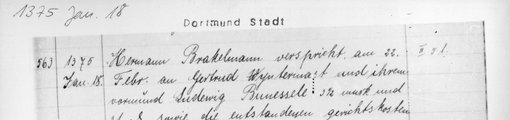 1375 Jan. 18
Dortmund Stadt
563 1375 Hermann Brakelmann verspricht am 22. II 51.
Jan. 18. Febr. an Gertrud Wyntermast und ihrem
vormund Ludewig Bunessele: 3½ mark und
sowie die entstandenen gerichtskosten